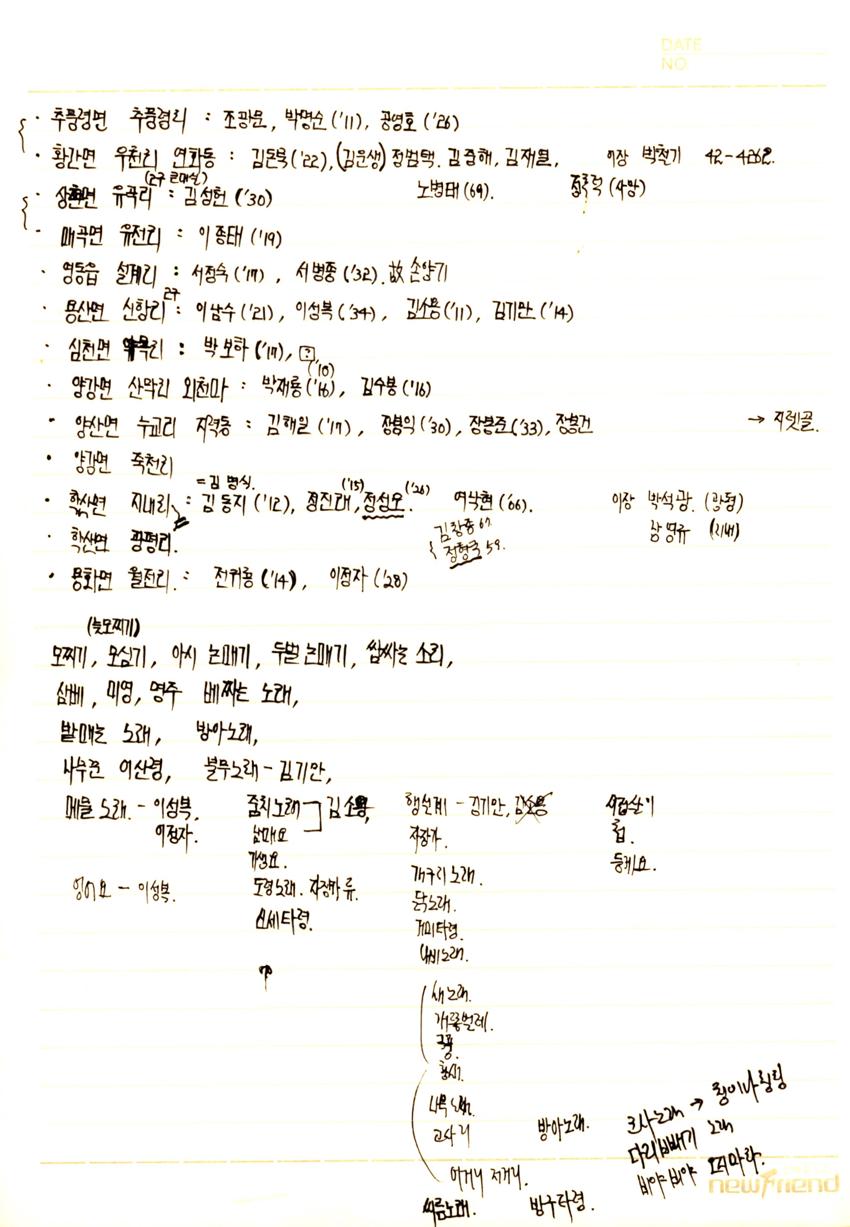 DATE
NO
· 추풍령면 추풍령리 : 조광운, 박명순('11), 공영호('26)
· 황간면 우천리 연화동 : 김돈욱('22), (김운생) 정범택. 김춘해, 김재열, 이장 박철기 42-4262.
· 상촌면 유곡리 : 김성헌('30) 노병태(69).
· 매곡면 유전리 : 이종태('19)
· 영동읍 설계리 : 서정숙('17), 서병종('32). 故 손양기
· 용산면 신항리 2구 : 이남수('21), 이성복('34), 김소용('11), 김기만('14)
· 심천면 약목리 : 박보하('17), ?
· 양강면 산막리 외천마 : 박재룡('16)('10), 김수봉('16)
· 양산면 누교리 지력동 : 김해일('17), 장봉익('30), 장봉준('33), 장봉건 → 지렛골.
· 양강면 죽천리
= 김병식.
· 학산면 지내리 : 김동지('12), 정진태('15), 정성모('26). 여낙현('66). 이장 박석광. (광평)
· 학산면 광평리. 김창종 67 장영규 (지내)
정형국 59.
· 용화면 월전리 : 전귀룡('14), 이점자('28)
(늦모찌기)
모찌기, 모심기, 아시 논매기, 두벌 논매기, 쌈싸는 소리,
삼베, 미영, 명주 베짜는 노래,
밭매는 노래, 방아노래,
나무꾼 어산령, 불무노래 - 김기만,
메물 노래. - 이성복, 줌치노래 김소용, 행실계 - 김기만,
이점자. 낚매요 자장가.
개성요. 개구리 노래. 둥게요.
잉어요 - 이성복. 도령노래. 자장가 류. 닭노래.
신세타령. 거미타령.
나비노래.
새노래.
개똥벌레.
국풍.
황새.
나물 노래.
고사리 방아노래. 코사노래 → 칭이나칭칭
다리빼기 노래
이거리 저거리. 비야비야 오지마라.
씨름노래. 방구타령.
newfriend